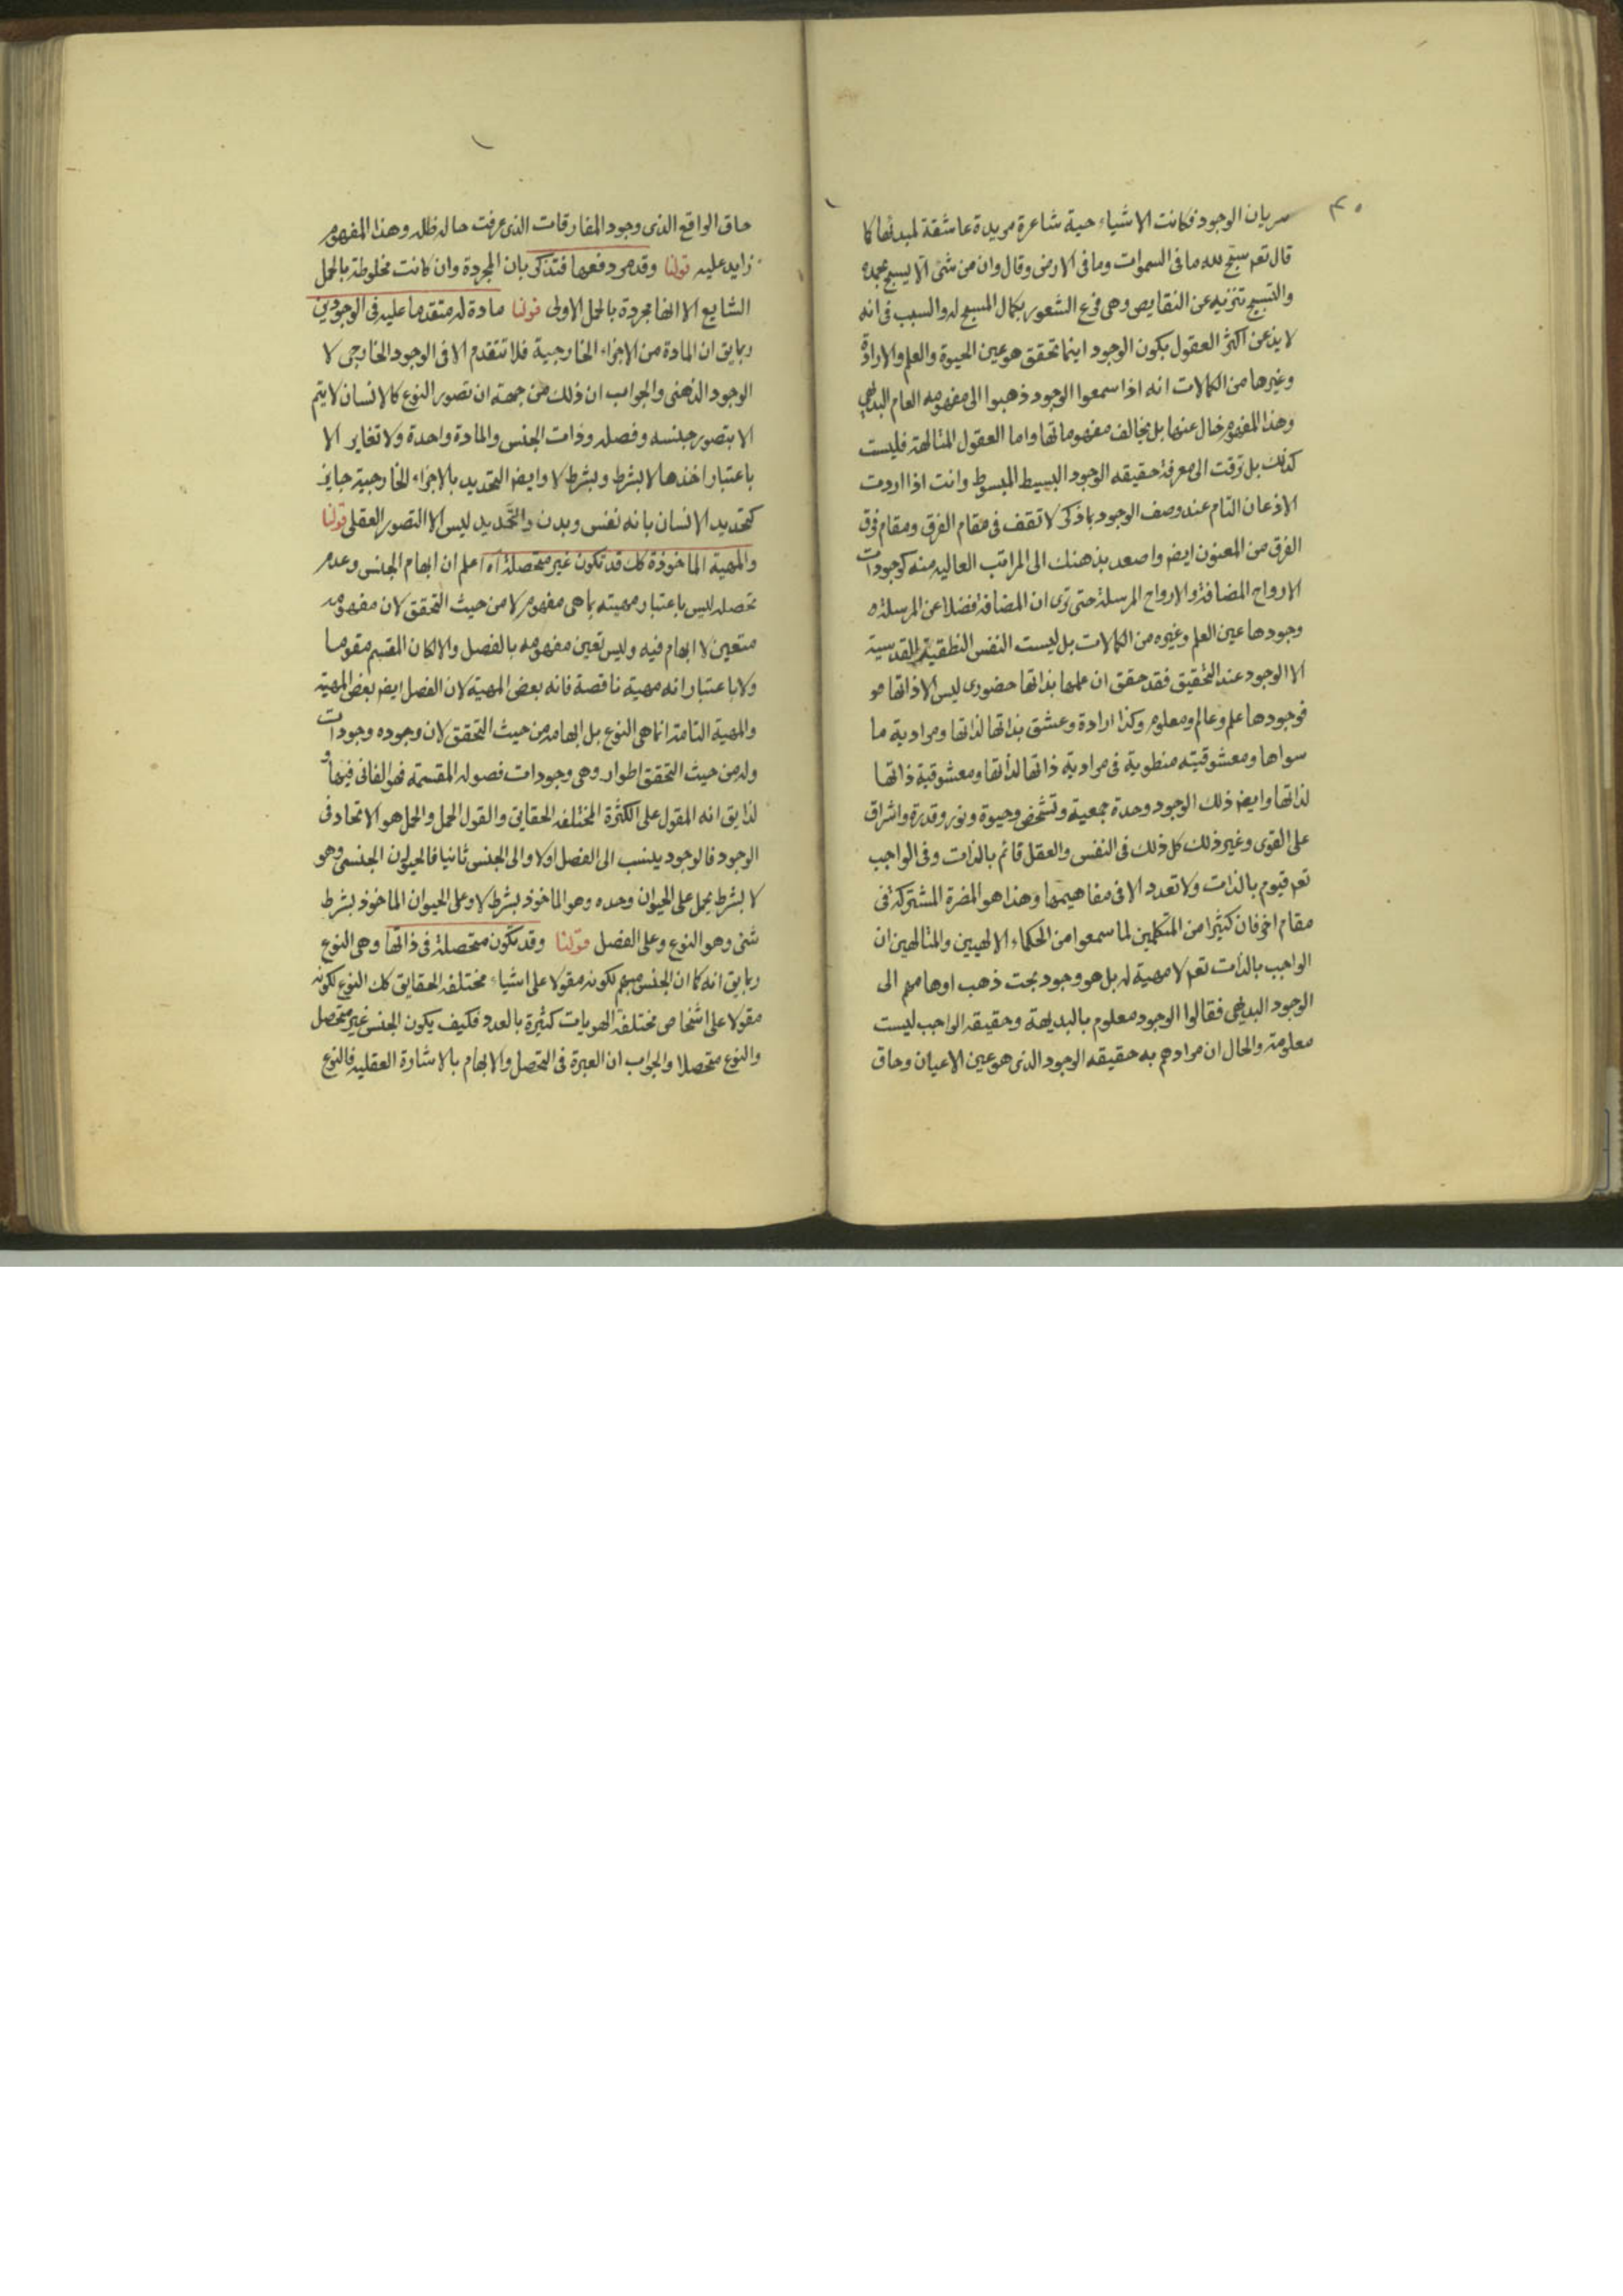 ٣٠
سريان الوجود فكانت الاشياء حية شاعرة مريدة عاشقة لمبدئها كما
قال تعه سبح لله ما فى السموات وما فى الارض وقال وان من شئ الا يسبح بحمده
والتسبيح تنزيه عن النقايص وهى فرع الشعور بكمال المسبح له والسبب فى انه
لا يذعن اكثر العقول بكون الوجود اينما تحقق هو عين الحيوة والعلم والارادة
وغيرها من الكمالات انه اذا سمعوا الوجود ذهبوا الى مفهومه العام البديهى
وهذا المفهوم خال عنها بل يخالف مفهوماتها واما العقول المتالهة فليست
كذلك بل ترقت الى معرفة حقيقه الوجود البسيط المبسوط وانت اذا اردت
الاذعان التام عند وصف الوجود بما ذكر لا تقف فى مقام الفرق ومقام فرق
الفرق من المعنون ايضا واصعد بذهنك الى المراتب العاليه منه كوجودات
الارواح المضافة والارواح المرسلة حتى ترى ان المضافة فضلا عن المرسلة
وجودها عين العلم وغيره من الكمالات بل ليست النفس النطقية القدسية
الا الوجود عند التحقيق فقد حقق ان علمها بذاتها حضورى ليس الا ذاتها
فوجودها علم وعالم ومعلوم وكذا ارادة وعشق بذاتها لذاتها ومرادية ما
سواها ومعشوقيته منطوية فى مرادية ذاتها لذاتها ومعشوقية ذاتها
لذاتها وايضا ذلك الوجود وحدة جمعية وتشخص وحيوة ونور وقدرة واشراق
على القوى وغير ذلك كل ذلك فى النفس والعقل قائم بالذات وفى الواجب
تعه قيوم بالذات ولا تعدد الا فى مفاهيمها وهذا هو المضرة المشتركة فى
مقام اخر فان كثيرا من المتكلمين لما سمعوا من الحكماء الالهيين والمتالهين ان
الواجب بالذات تعه لا مهية له بل هو وجود بحت ذهب اوهامهم الى
الوجود البديهى فقالوا الوجود معلوم بالبديهة وحقيقه الواجب ليست
معلومة والحال ان مرادهم به حقيقه الوجود الذى هو عين الاعيان وحاق
حاق الواقع الذى وجود المفارقات الذى عرفت حاله ظله وهذا المفهوم
زايد عليه قولنا وقد مر دفعها فتذكر بان المجردة وان كانت مخلوطة بالحمل
الشايع الا انها مجردة بالحمل الاولى قولنا مادة له متقدما عليه فى الوجودين
ربما يق ان المادة من الاجزاء الخارجية فلا تتقدم الا فى الوجود الخارجى لا
الوجود الذهنى والجواب ان ذلك من جهة ان تصور النوع كالانسان لا يتم
الا بتصور جنسه وفصله وذات الجنس والمادة واحدة ولا تغاير الا
باعتبار اخذها لا بشرط وبشرط لا وايضا التحديد بالاجزاء الخارجية جايز
كتحديد الانسان بانه نفس وبدن والتحديد ليس الا التصور العقلى قولنا
والمهية الماخوذة كك قد تكون غير متحصلة اه اعلم ان ابهام الجنس وعدم
تحصله ليس باعتبار مهيته بما هى مفهوم لا من حيث التحقق لان مفهومه
متعين لا ابهام فيه وليس تعين مفهومه بالفصل والا لكان المقسم مقوما
ولا باعتبار انه مهية ناقصة فانه بعض المهية لان الفصل ايضا بعض المهية
والمهية التامة انما هى النوع بل ابهامه من حيث التحقق لان وجوده وجودات
وله من حيث التحقق اطوار وهى وجودات فصوله المقسمة فهو الفانى فيها و
لذا يق انه المقول على الكثرة المختلفه الحقايق والقول الحمل والحمل هو الاتحاد فى
الوجود فالوجود ينسب الى الفصل اولا والى الجنس ثانيا فالحيوان الجنسى وهو
لا بشرط يحمل على الحيوان وحده وهو الماخوذ بشرط لا وعلى الحيوان الماخوذ بشرط
شئ وهو النوع وعلى الفصل قولنا وقد تكون متحصلة فى ذاتها وهى النوع
ربما يق انه كما ان الجنس مبهم لكونه مقولا على اشياء مختلفه الحقايق كك النوع لكونه
مقولا على اشخاص مختلفة الهويات كثيرة بالعدد فكيف يكون الجنس غير متحصل
والنوع متحصلا والجواب ان العبرة فى التحصل والابهام بالاشارة العقليه فالنوع